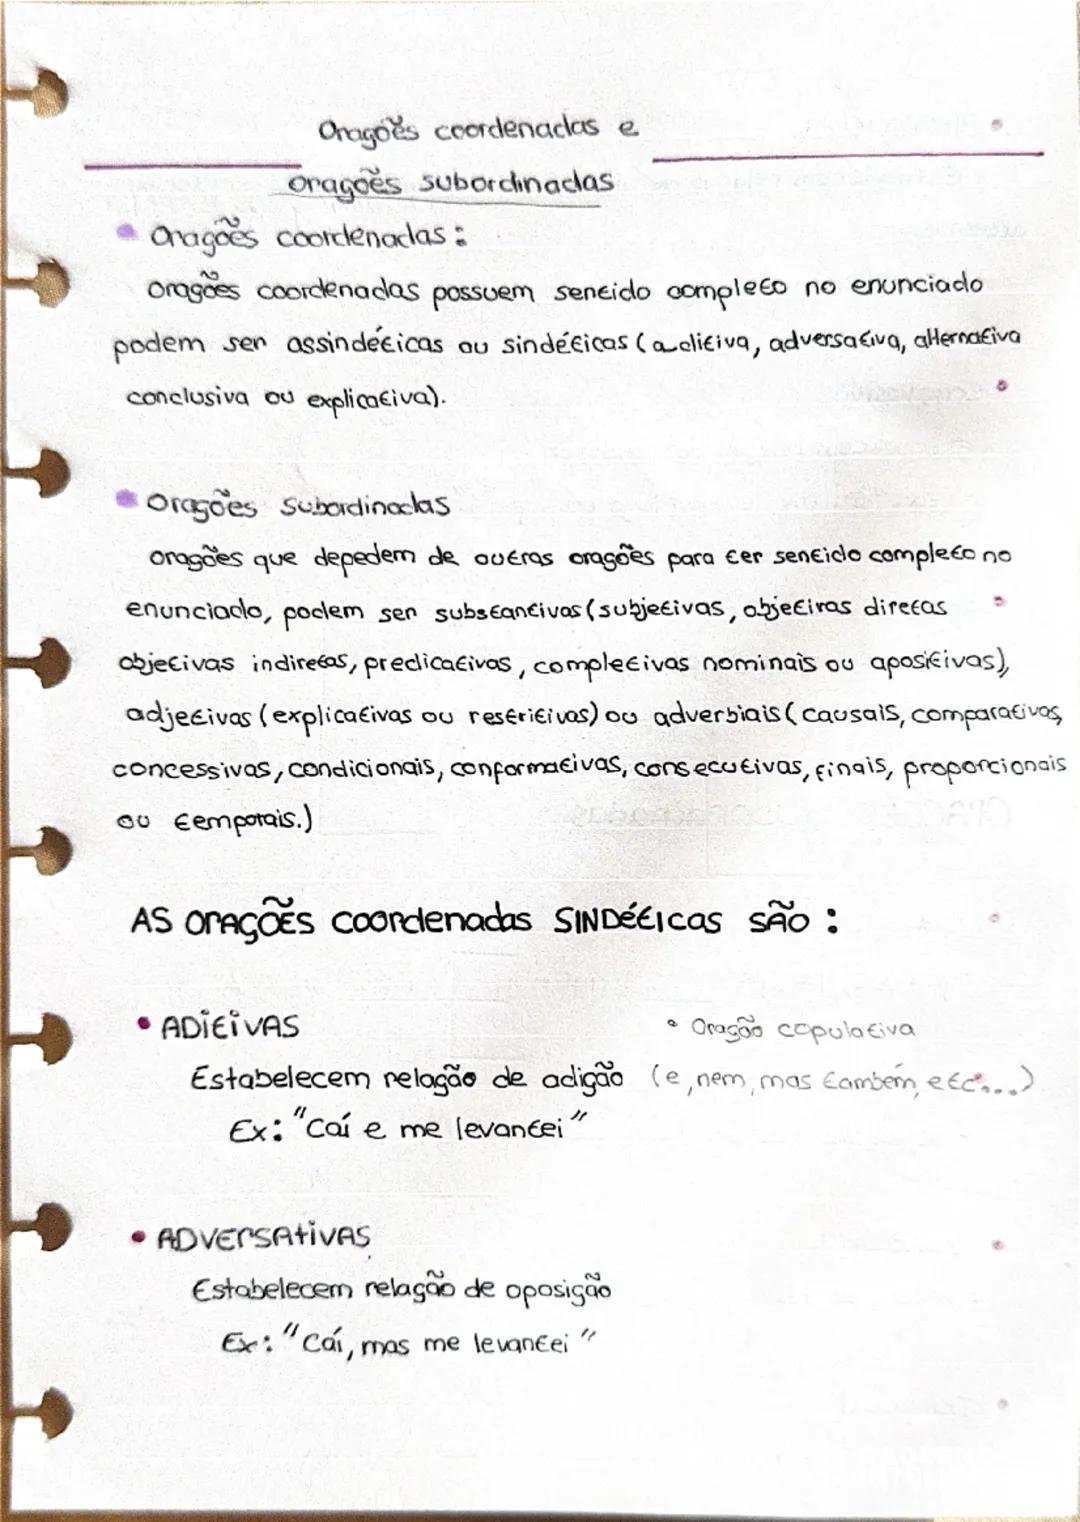 Orações coordenadas e
orações subordinadas
Orações coordenadas:
orações coordenadas possuem sentido completo no enunciado
podem ser assindéticas ou sindéticas (aditiva, adversativa, alternativa
conclusiva ou explicativa).
Orações subordinadas
orações que depedem de outras orações para ter sentido completo no
enunciado, podem ser substantivas (subjetivas, objetivas diretas
objetivas indiretas, predicativas, completivas nominais ou apositivas),
adjetivas (explicativas ou restritivas) ou adverbiais (causais, comparativas,
concessivas, condicionais, conformativas, consecutivas, finais, proporcionais
ou temporais.)
AS ORAÇÕES coordenadas SINDÉtICAS SÃO:
• ADITIVAS
• Oração copulativa
Estabelecem relação de adição (e, nem, mas também, etc....)
Ex: "Caí e me levantei"
• ADVERSATIVAS
Estabelecem relação de oposição
Ex: "Caí, mas me levantei"